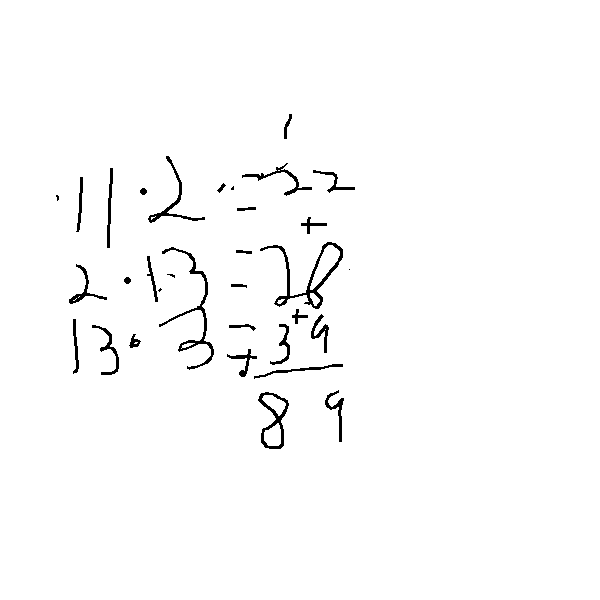 1
11 · 2 = 22
+
2 · 13 = 28
+
13 · 3 = + 39
89